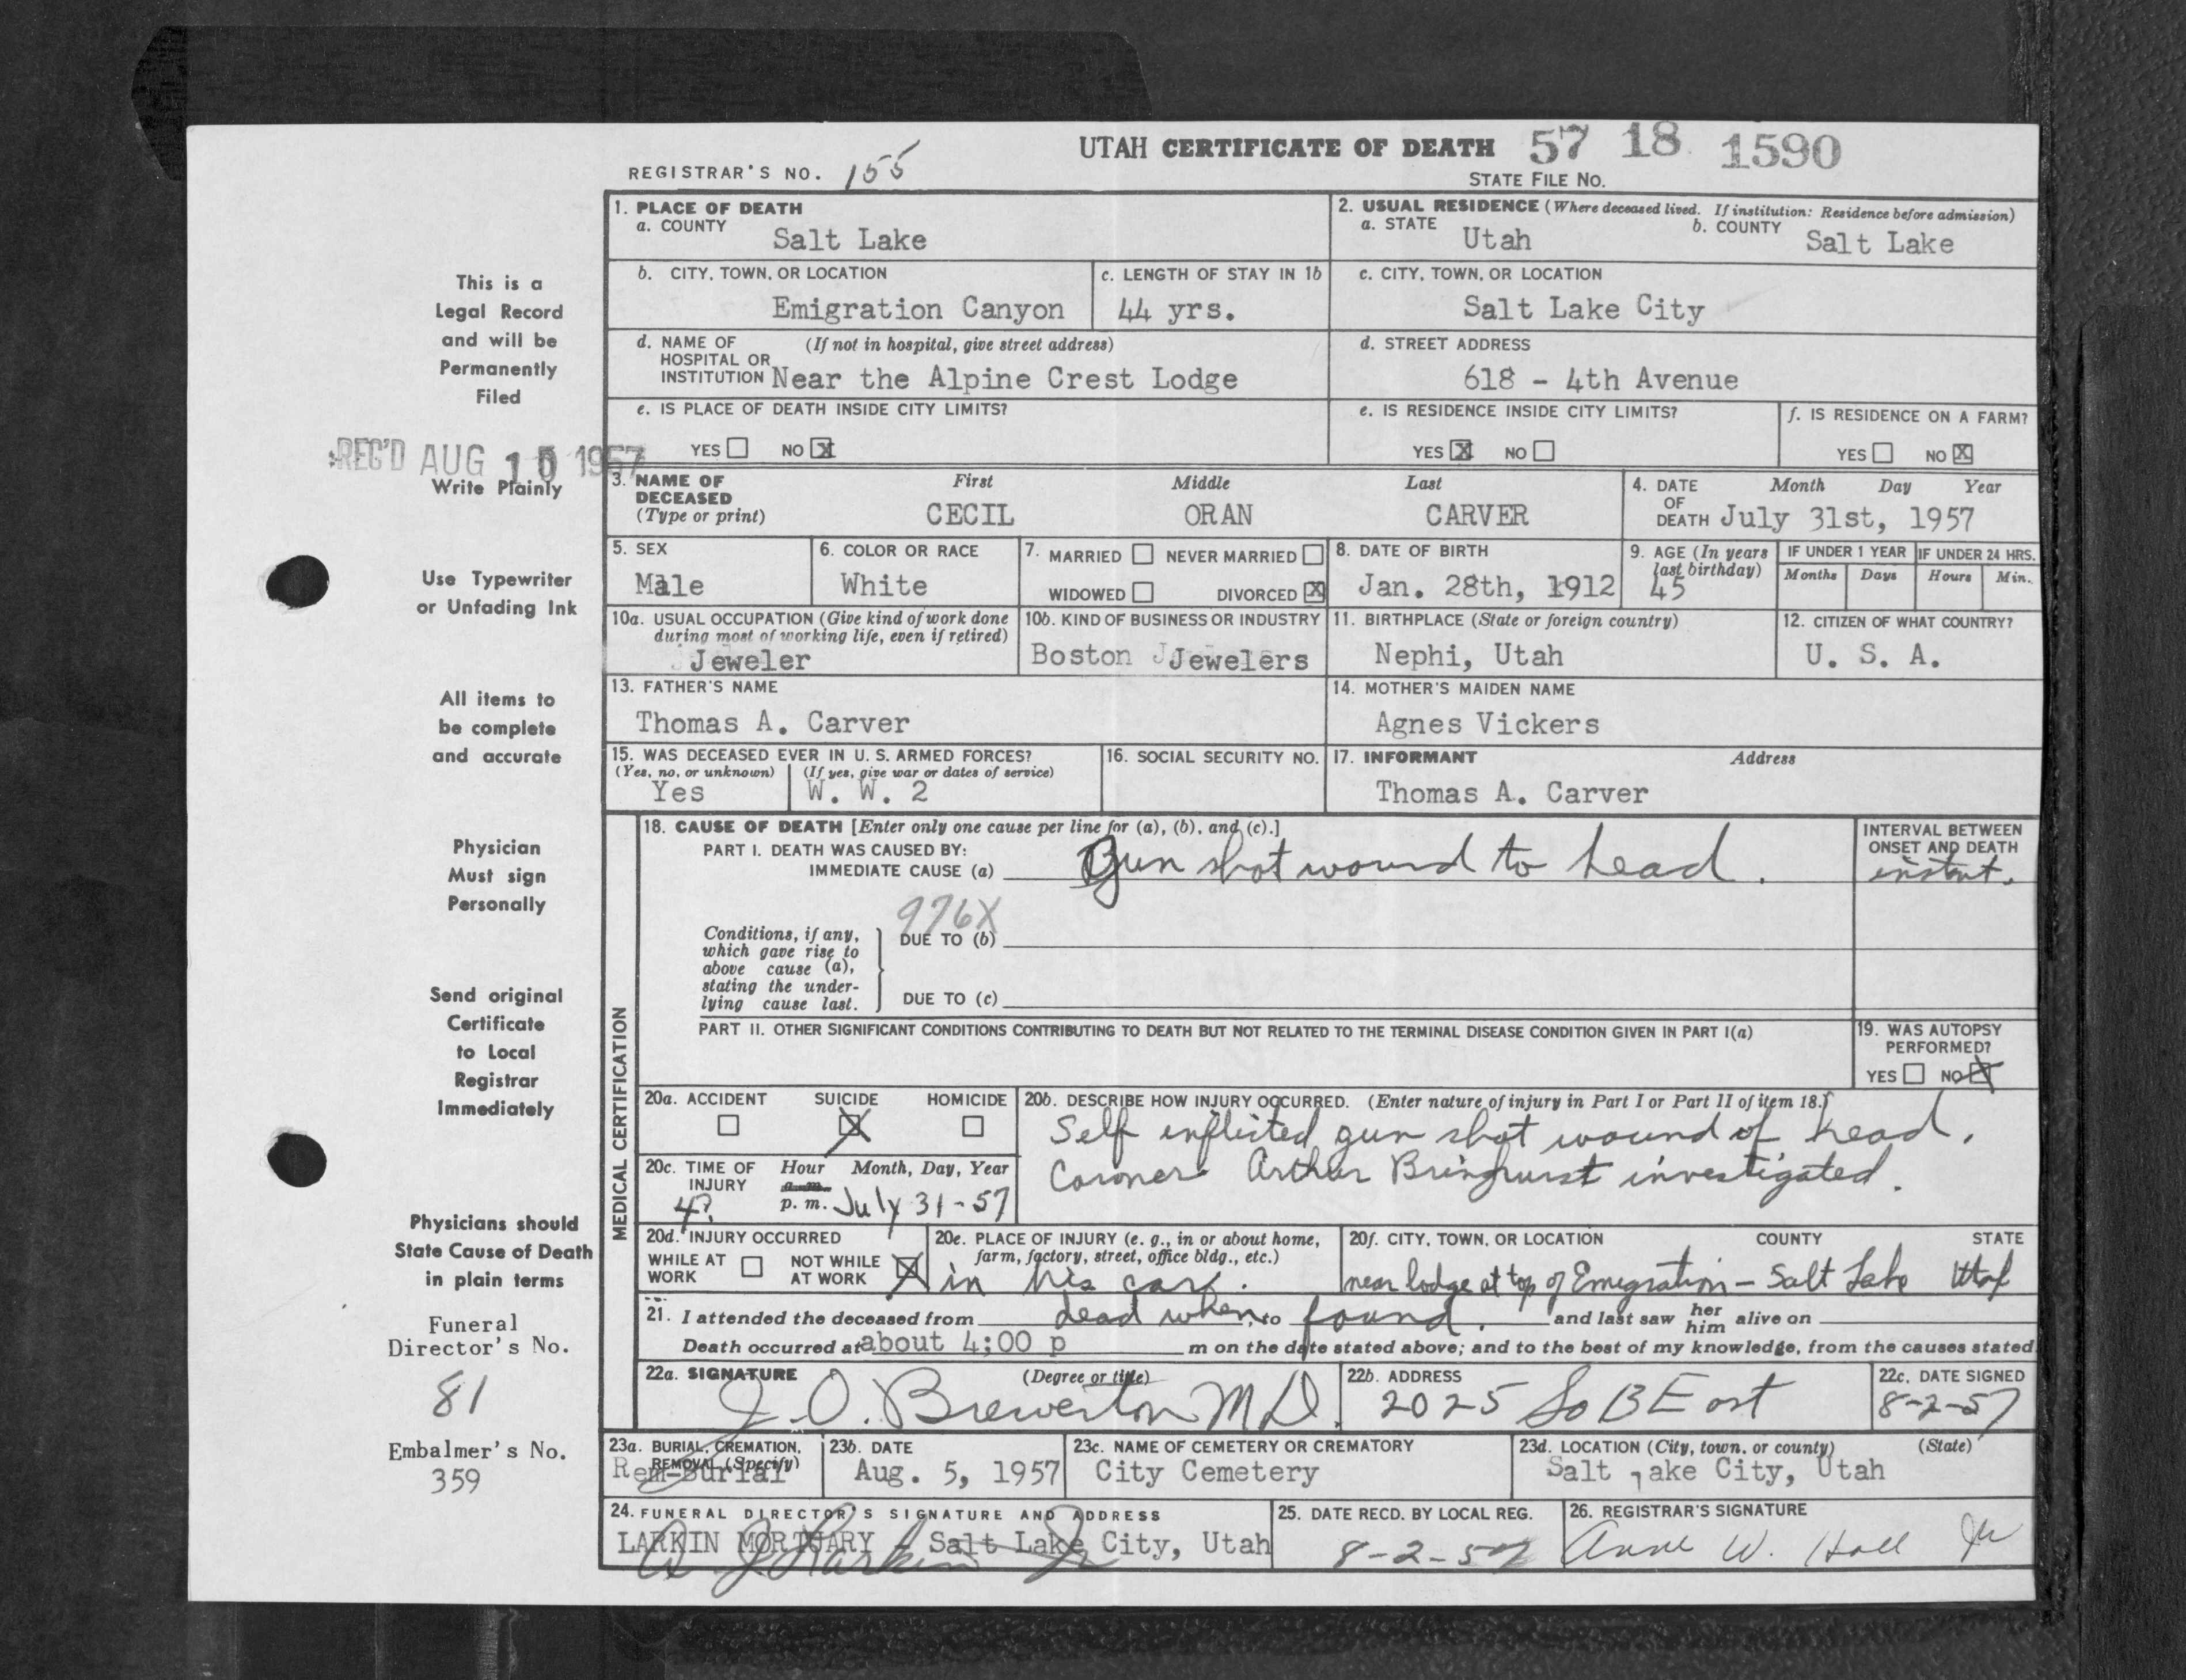 UTAH CERTIFICATE OF DEATH 57 18 1590
REGISTRAR'S NO. 155
STATE FILE NO.
1. PLACE OF DEATH
a. COUNTY Salt Lake
2. USUAL RESIDENCE (Where deceased lived. If institution: Residence before admission)
a. STATE Utah b. COUNTY Salt Lake
b. CITY, TOWN, OR LOCATION Emigration Canyon
c. LENGTH OF STAY IN 1b 44 yrs.
c. CITY, TOWN, OR LOCATION Salt Lake City
d. NAME OF HOSPITAL OR INSTITUTION (If not in hospital, give street address) Near the Alpine Crest Lodge
d. STREET ADDRESS 618 - 4th Avenue
e. IS PLACE OF DEATH INSIDE CITY LIMITS?
YES NO X
e. IS RESIDENCE INSIDE CITY LIMITS?
YES X NO
f. IS RESIDENCE ON A FARM?
YES NO X
3. NAME OF DECEASED (Type or print)
First Middle Last
CECIL ORAN CARVER
4. DATE OF DEATH Month Day Year
July 31st, 1957
5. SEX Male
6. COLOR OR RACE White
7. MARRIED NEVER MARRIED
WIDOWED DIVORCED X
8. DATE OF BIRTH Jan. 28th, 1912
9. AGE (In years last birthday) 45
IF UNDER 1 YEAR IF UNDER 24 HRS.
Months Days Hours Min.
10a. USUAL OCCUPATION (Give kind of work done during most of working life, even if retired)
Jeweler
10b. KIND OF BUSINESS OR INDUSTRY
Boston Jewelers
11. BIRTHPLACE (State or foreign country)
Nephi, Utah
12. CITIZEN OF WHAT COUNTRY?
U. S. A.
13. FATHER'S NAME
Thomas A. Carver
14. MOTHER'S MAIDEN NAME
Agnes Vickers
15. WAS DECEASED EVER IN U. S. ARMED FORCES?
(Yes, no, or unknown) (If yes, give war or dates of service)
Yes W. W. 2
16. SOCIAL SECURITY NO.
17. INFORMANT Address
Thomas A. Carver
MEDICAL CERTIFICATION
18. CAUSE OF DEATH [Enter only one cause per line for (a), (b), and (c).]
PART I. DEATH WAS CAUSED BY:
IMMEDIATE CAUSE (a) Gun shot wound to head.
INTERVAL BETWEEN ONSET AND DEATH
instant.
976X
Conditions, if any, which gave rise to above cause (a), stating the underlying cause last.
DUE TO (b)
DUE TO (c)
PART II. OTHER SIGNIFICANT CONDITIONS CONTRIBUTING TO DEATH BUT NOT RELATED TO THE TERMINAL DISEASE CONDITION GIVEN IN PART I(a)
19. WAS AUTOPSY PERFORMED?
YES NO X
20a. ACCIDENT SUICIDE X HOMICIDE
20b. DESCRIBE HOW INJURY OCCURRED. (Enter nature of injury in Part I or Part II of item 18.)
Self inflicted gun shot wound of head.
Coroner Arthur Bringhurst investigated.
20c. TIME OF INJURY Hour Month, Day, Year
a. m.
4? p. m. July 31-57
20d. INJURY OCCURRED
WHILE AT WORK NOT WHILE AT WORK X
20e. PLACE OF INJURY (e. g., in or about home, farm, factory, street, office bldg., etc.)
in his car.
20f. CITY, TOWN, OR LOCATION COUNTY STATE
near lodge at top of Emigration - Salt Lake Utah
21. I attended the deceased from dead when to found. and last saw her him alive on
Death occurred at about 4:00 p m on the date stated above; and to the best of my knowledge, from the causes stated
22a. SIGNATURE (Degree or title)
J. O. Brewerton MD.
22b. ADDRESS
2025 So 13 East
22c. DATE SIGNED
8-2-57
23a. BURIAL, CREMATION, REMOVAL (Specify)
Rem-Burial
23b. DATE
Aug. 5, 1957
23c. NAME OF CEMETERY OR CREMATORY
City Cemetery
23d. LOCATION (City, town, or county) (State)
Salt Lake City, Utah
24. FUNERAL DIRECTOR'S SIGNATURE AND ADDRESS
LARKIN MORTUARY - Salt Lake City, Utah
25. DATE RECD. BY LOCAL REG.
8-2-57
26. REGISTRAR'S SIGNATURE
Anne W. Hall
This is a
Legal Record
and will be
Permanently
Filed
REC'D AUG 15 1957
Write Plainly
Use Typewriter
or Unfading Ink
All items to
be complete
and accurate
Physician
Must sign
Personally
Send original
Certificate
to Local
Registrar
Immediately
Physicians should
State Cause of Death
in plain terms
Funeral
Director's No.
81
Embalmer's No.
359